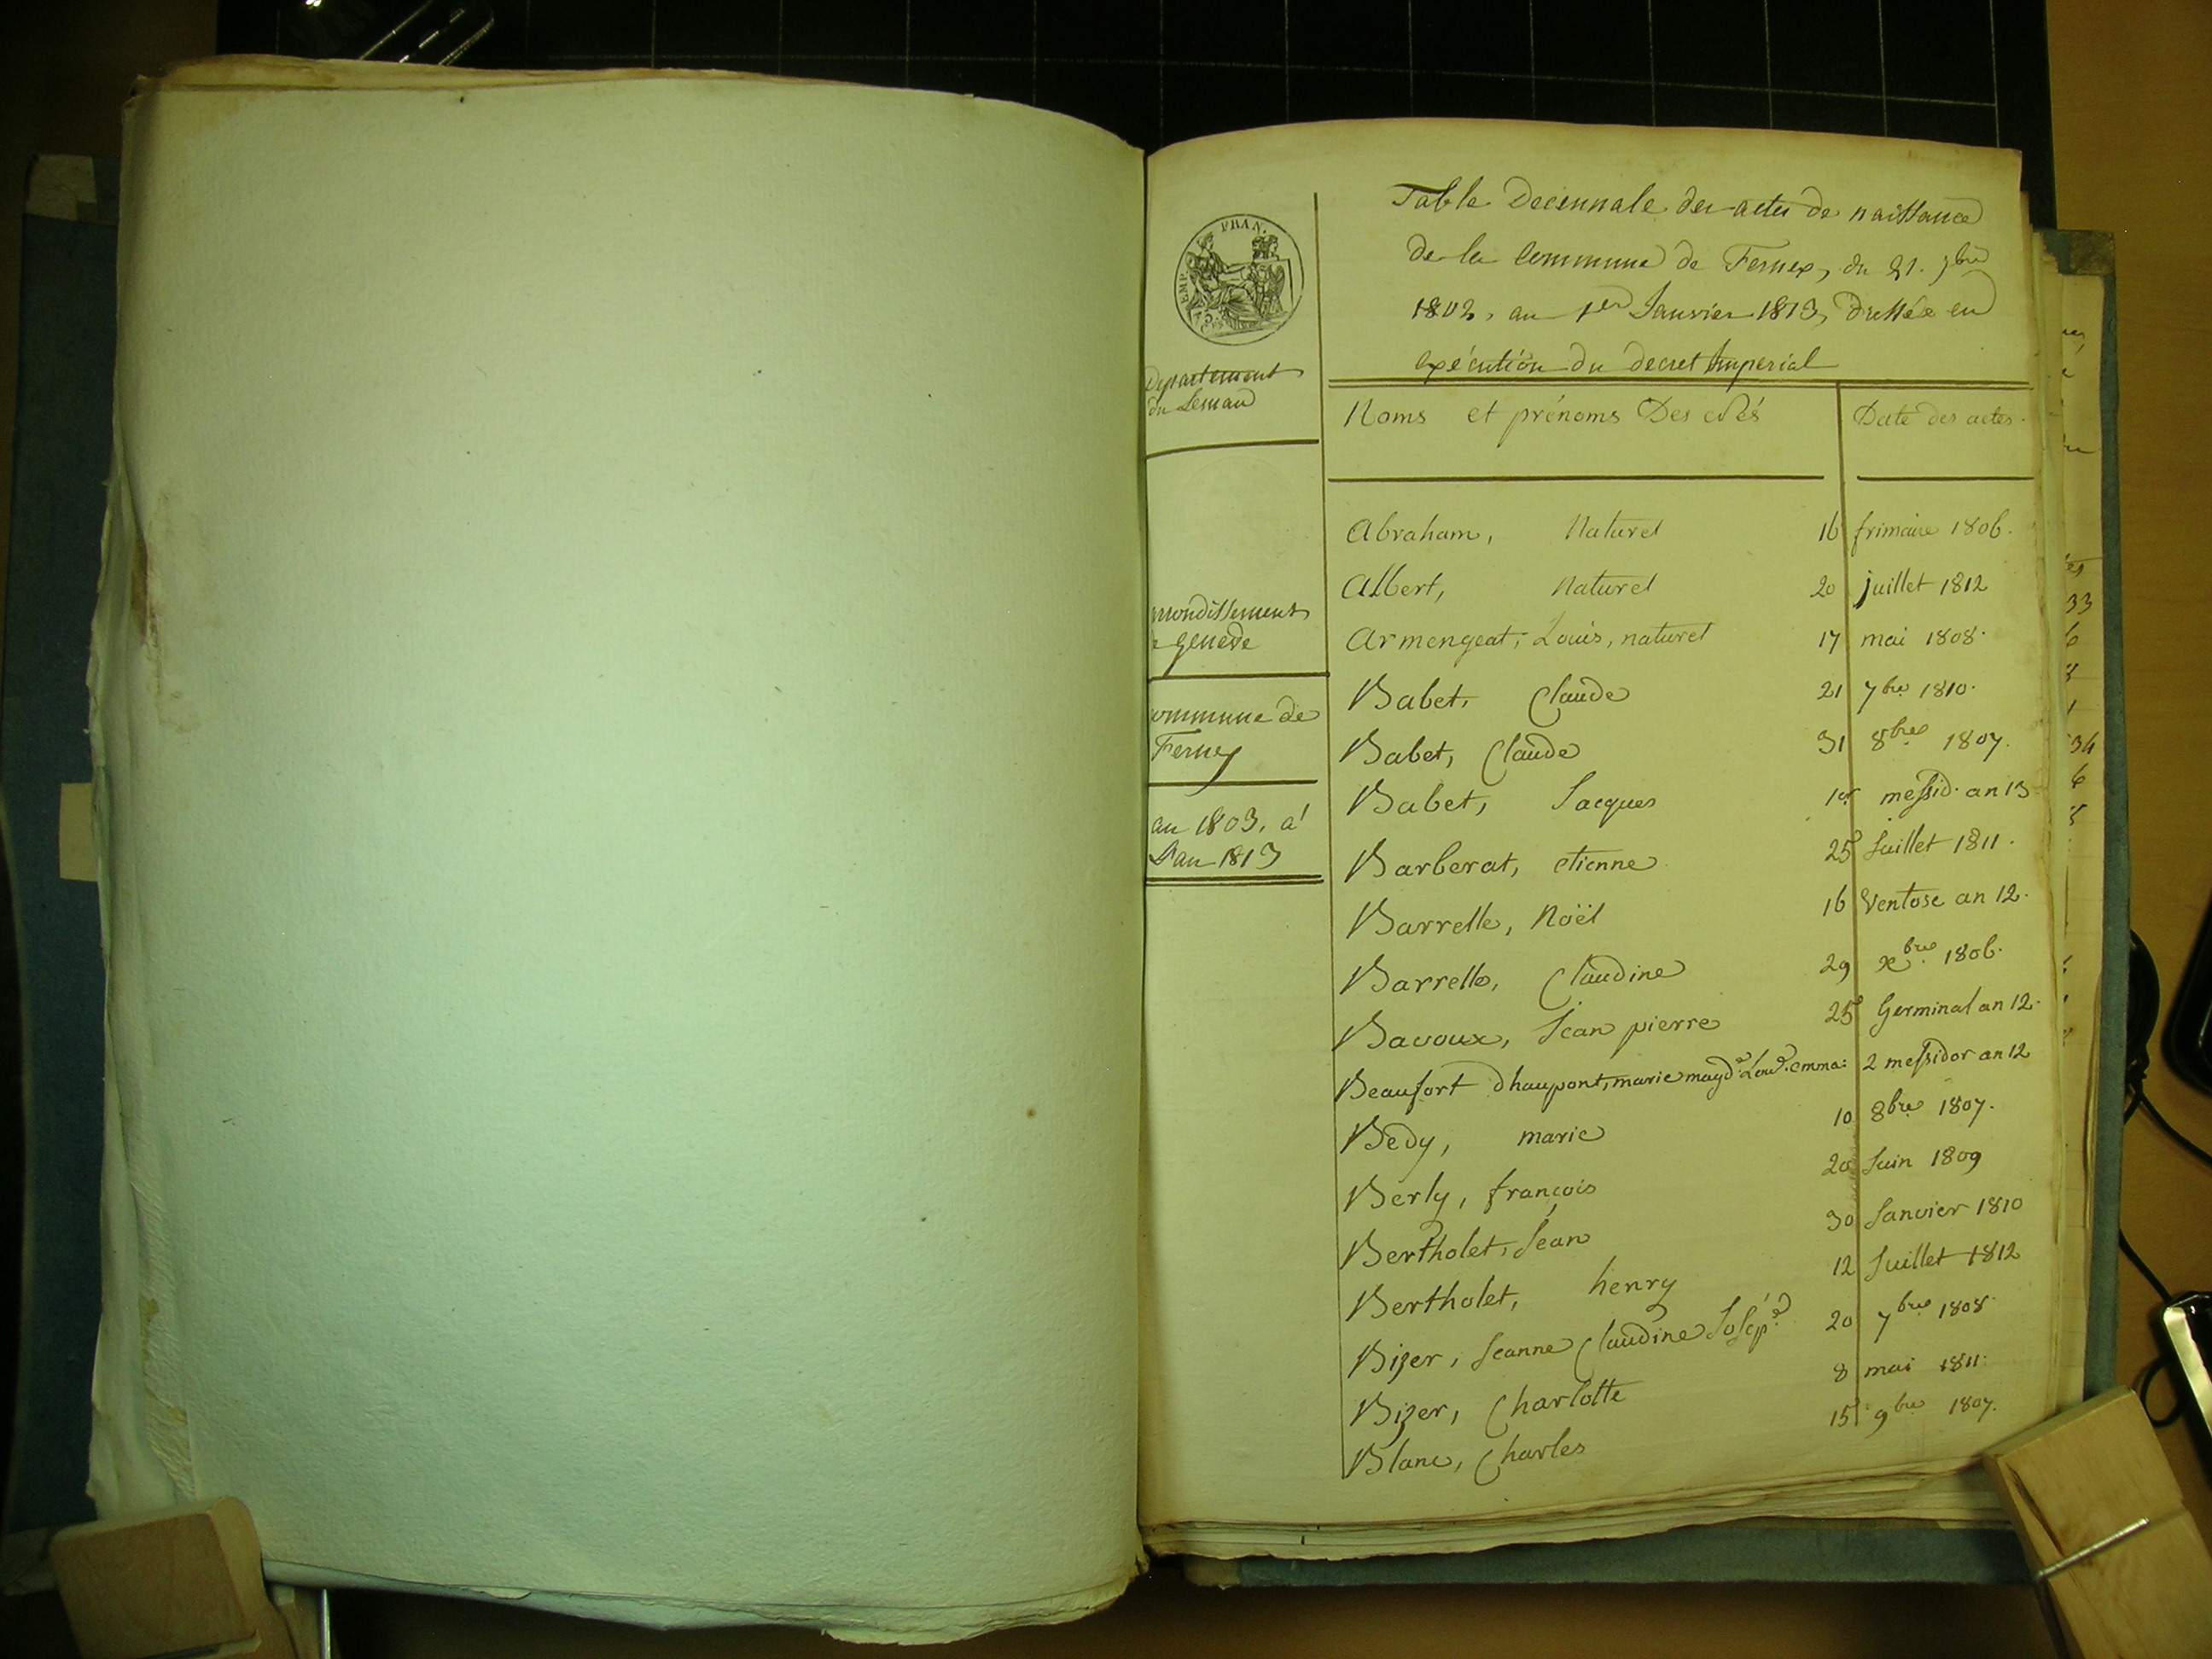 EMP. FRAN.
Departement
du Leman
arrondissement
de geneve
Commune de
Ferney
an 1803. a
L'an 1813
Table Decennale des actes de naissance
de la Commune de Fernex, du 21. 7bre
1802, au 1er Janvier 1813, dressée en
exécution du decret Imperial
Noms et prénoms Des Date des actes.
Abraham, Naturel 16 frimaire 1806.
Albert, Naturel 20 juillet 1812
Armengeat, Louis, naturel 17 mai 1808.
Babet, Claude 21 7bre 1810.
Babet, Claude 31 8bre 1807.
Babet, Jacques 1er messid. an 13
Barberat, etienne 25 Juillet 1811.
Barrelle, Noël 16 Ventose an 12.
Barrelle, Claudine 29 xbre 1806.
Bavoux, Jean pierre 25 Germinal an 12.
Beaufort dhaupont, marie magd.e Lou.e emma: 2 messidor an 12
Bedy, marie 10 8bre 1807.
Berly, françois 20 Juin 1809
Bertholet, Jean 30 Janvier 1810
Bertholet, henry 12 Juillet 1812
Bizer, Jeanne Claudine Josép.e 20 7bre 1808.
Bizer, Charlotte 8 mai 1811.
Blanc, Charles 15 9bre 1807.